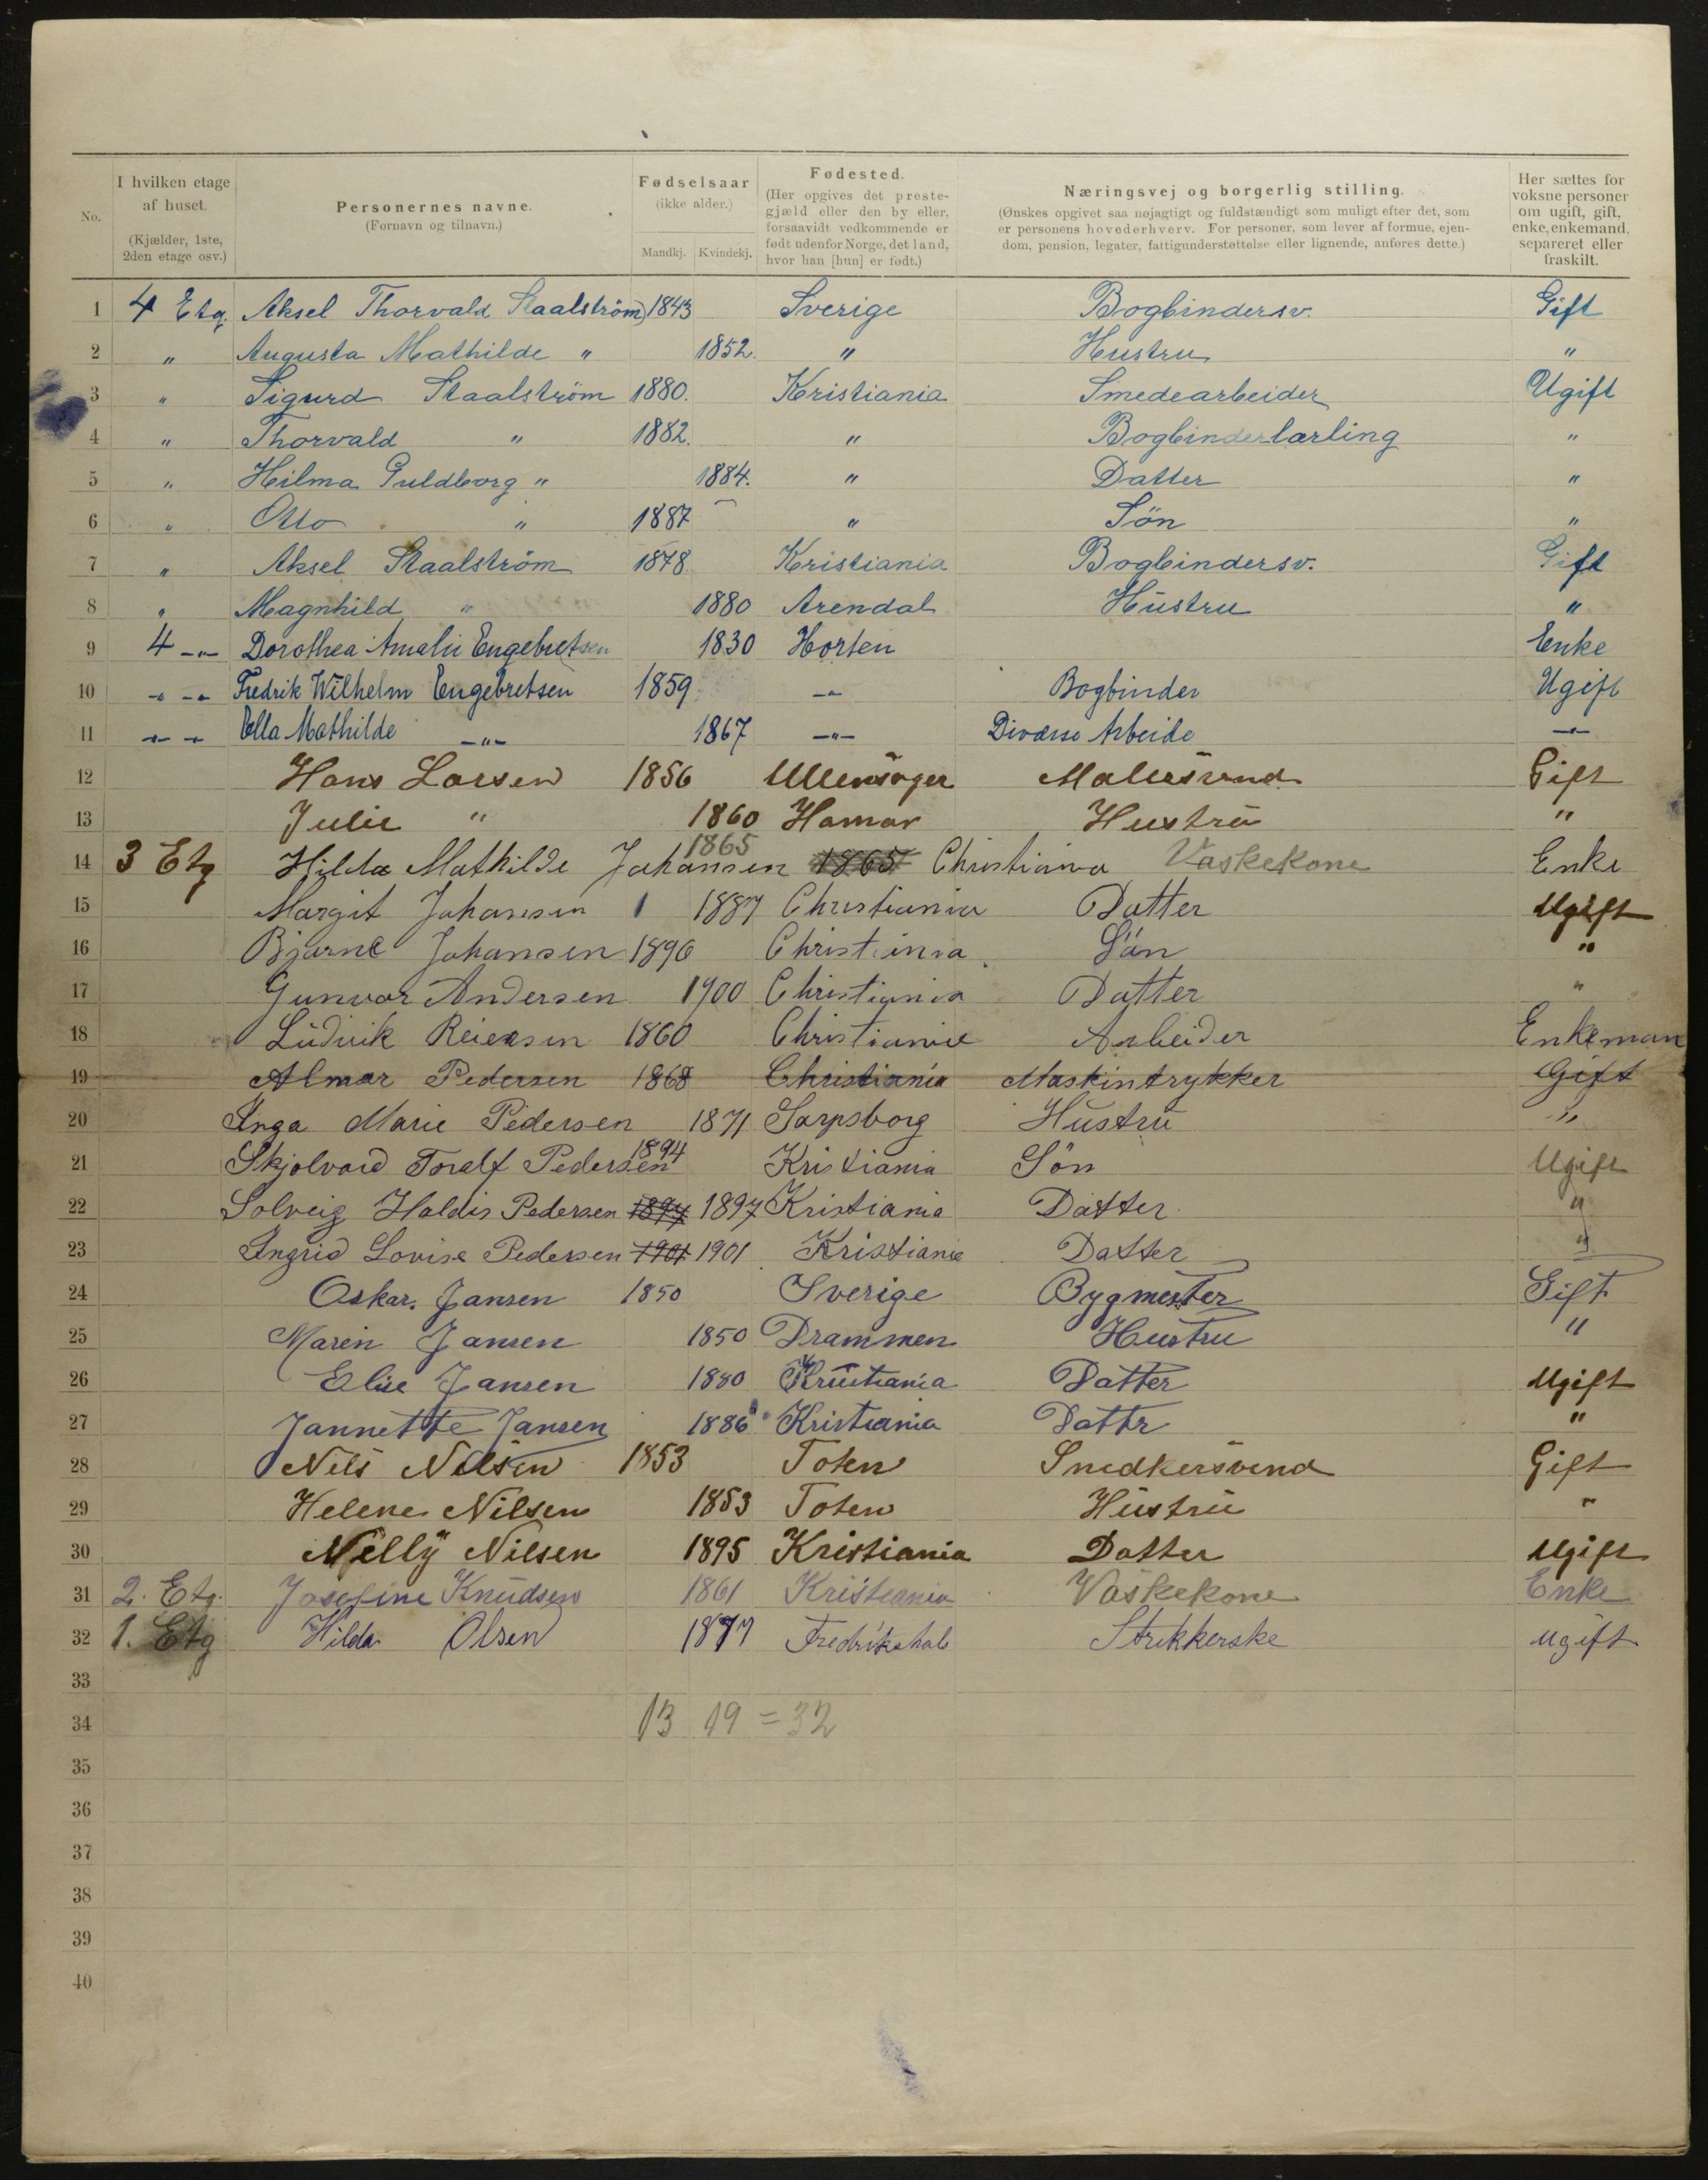 No.
I hvilken etage af huset. (Kjælder, 1ste, 2den etage osv.)
Personernes navne. (Fornavn og tilnavn.)
Fødselsaar (ikke alder.) Mandkj. Kvindekj.
Fødested. (Her opgives det prestegjæld eller den by eller, forsaavidt vedkommende er født udenfor Norge, det land, hvor han [hun] er født.)
Næringsvej og borgerlig stilling. (Ønskes opgivet saa nøjagtigt og fuldstændigt som muligt efter det, som er personens hovederhverv. For personer, som lever af formue, ejendom, pension, legater, fattigunderstøttelse eller lignende, anføres dette.)
Her sættes for voksne personer om ugift, gift, enke, enkemand, separeret eller fraskilt.
1 4 Etg. Aksel Thorvald Staalström 1843 Sverige Bogbindersv. Gift
2 " Augusta Mathilde " 1852. " Hustru "
3 " Sigurd Staalström 1880. Kristiania Smedearbeider Ugift
4 " Thorvald " 1882. " Bogbinderlærling "
5 " Hilma Guldborg " 1884. " Datter "
6 " Otto " 1887 " Sön "
7 " Aksel Staalström 1878. Kristiania Bogbindersv. Gift
8 " Magnhild " 1880 Arendal Hustru "
9 4 -"- Dorothea Amalie Engebretsen 1830 Horten Enke
10 -"- -"- Fredrik Wilhelm Engebretsen 1859 -"- Bogbinder Ugift
11 -"- -"- Ella Mathilde -"- 1867 -"- Diverse Arbeide -"-
12 Hans Larsen 1856 Ullensager Malersvend Gift
13 Julie " 1860 Hamar Hustru "
14 3 Etg Hilda Mathilde Johansen 1865 1865 Christiania Vaskekone Enke
15 Margit Johansen 1 1887 Christiania Datter Ugift
16 Bjarne Johansen 1896 Christiania Sön "
17 Gunvor Andersen 1900 Christiania Datter "
18 Ludvik Reiersen 1860 Christiania Arbeider Enkeman
19 Almar Pedersen 1868 Christiania Maskintrykker Gift
20 Inga Marie Pedersen 1871 Sarpsborg Hustru "
21 Skjolvard Toralf Pedersen 1894 Kristiania Sön Ugift
22 Solveig Haldis Pedersen 1897 1897 Kristiania Datter "
23 Ingrid Lovise Pedersen 1901 1901 Kristiania Datter "
24 Oskar. Jansen 1850 Sverige Bygmester Gift
25 Maren Jansen 1850 Drammen Hustru "
26 Elise Jansen 1880 Kristiania Datter Ugift
27 Jannette Jansen 1886 Kristiania Dattr "
28 Nils Nilsen 1853 Toten Snedkersvend Gift
29 Helene Nilsen 1853 Toten Hustru "
30 Nelly Nilsen 1895 Kristiania Datter Ugift
31 2. Etg. Josefine Knudsen 1861 Kristiania Vaskekone Enke
32 1. Etg Hilda Olsen 1877 Fredrikshald Strikkerske ugift
33
34 13 19 = 32
35
36
37
38
39
40